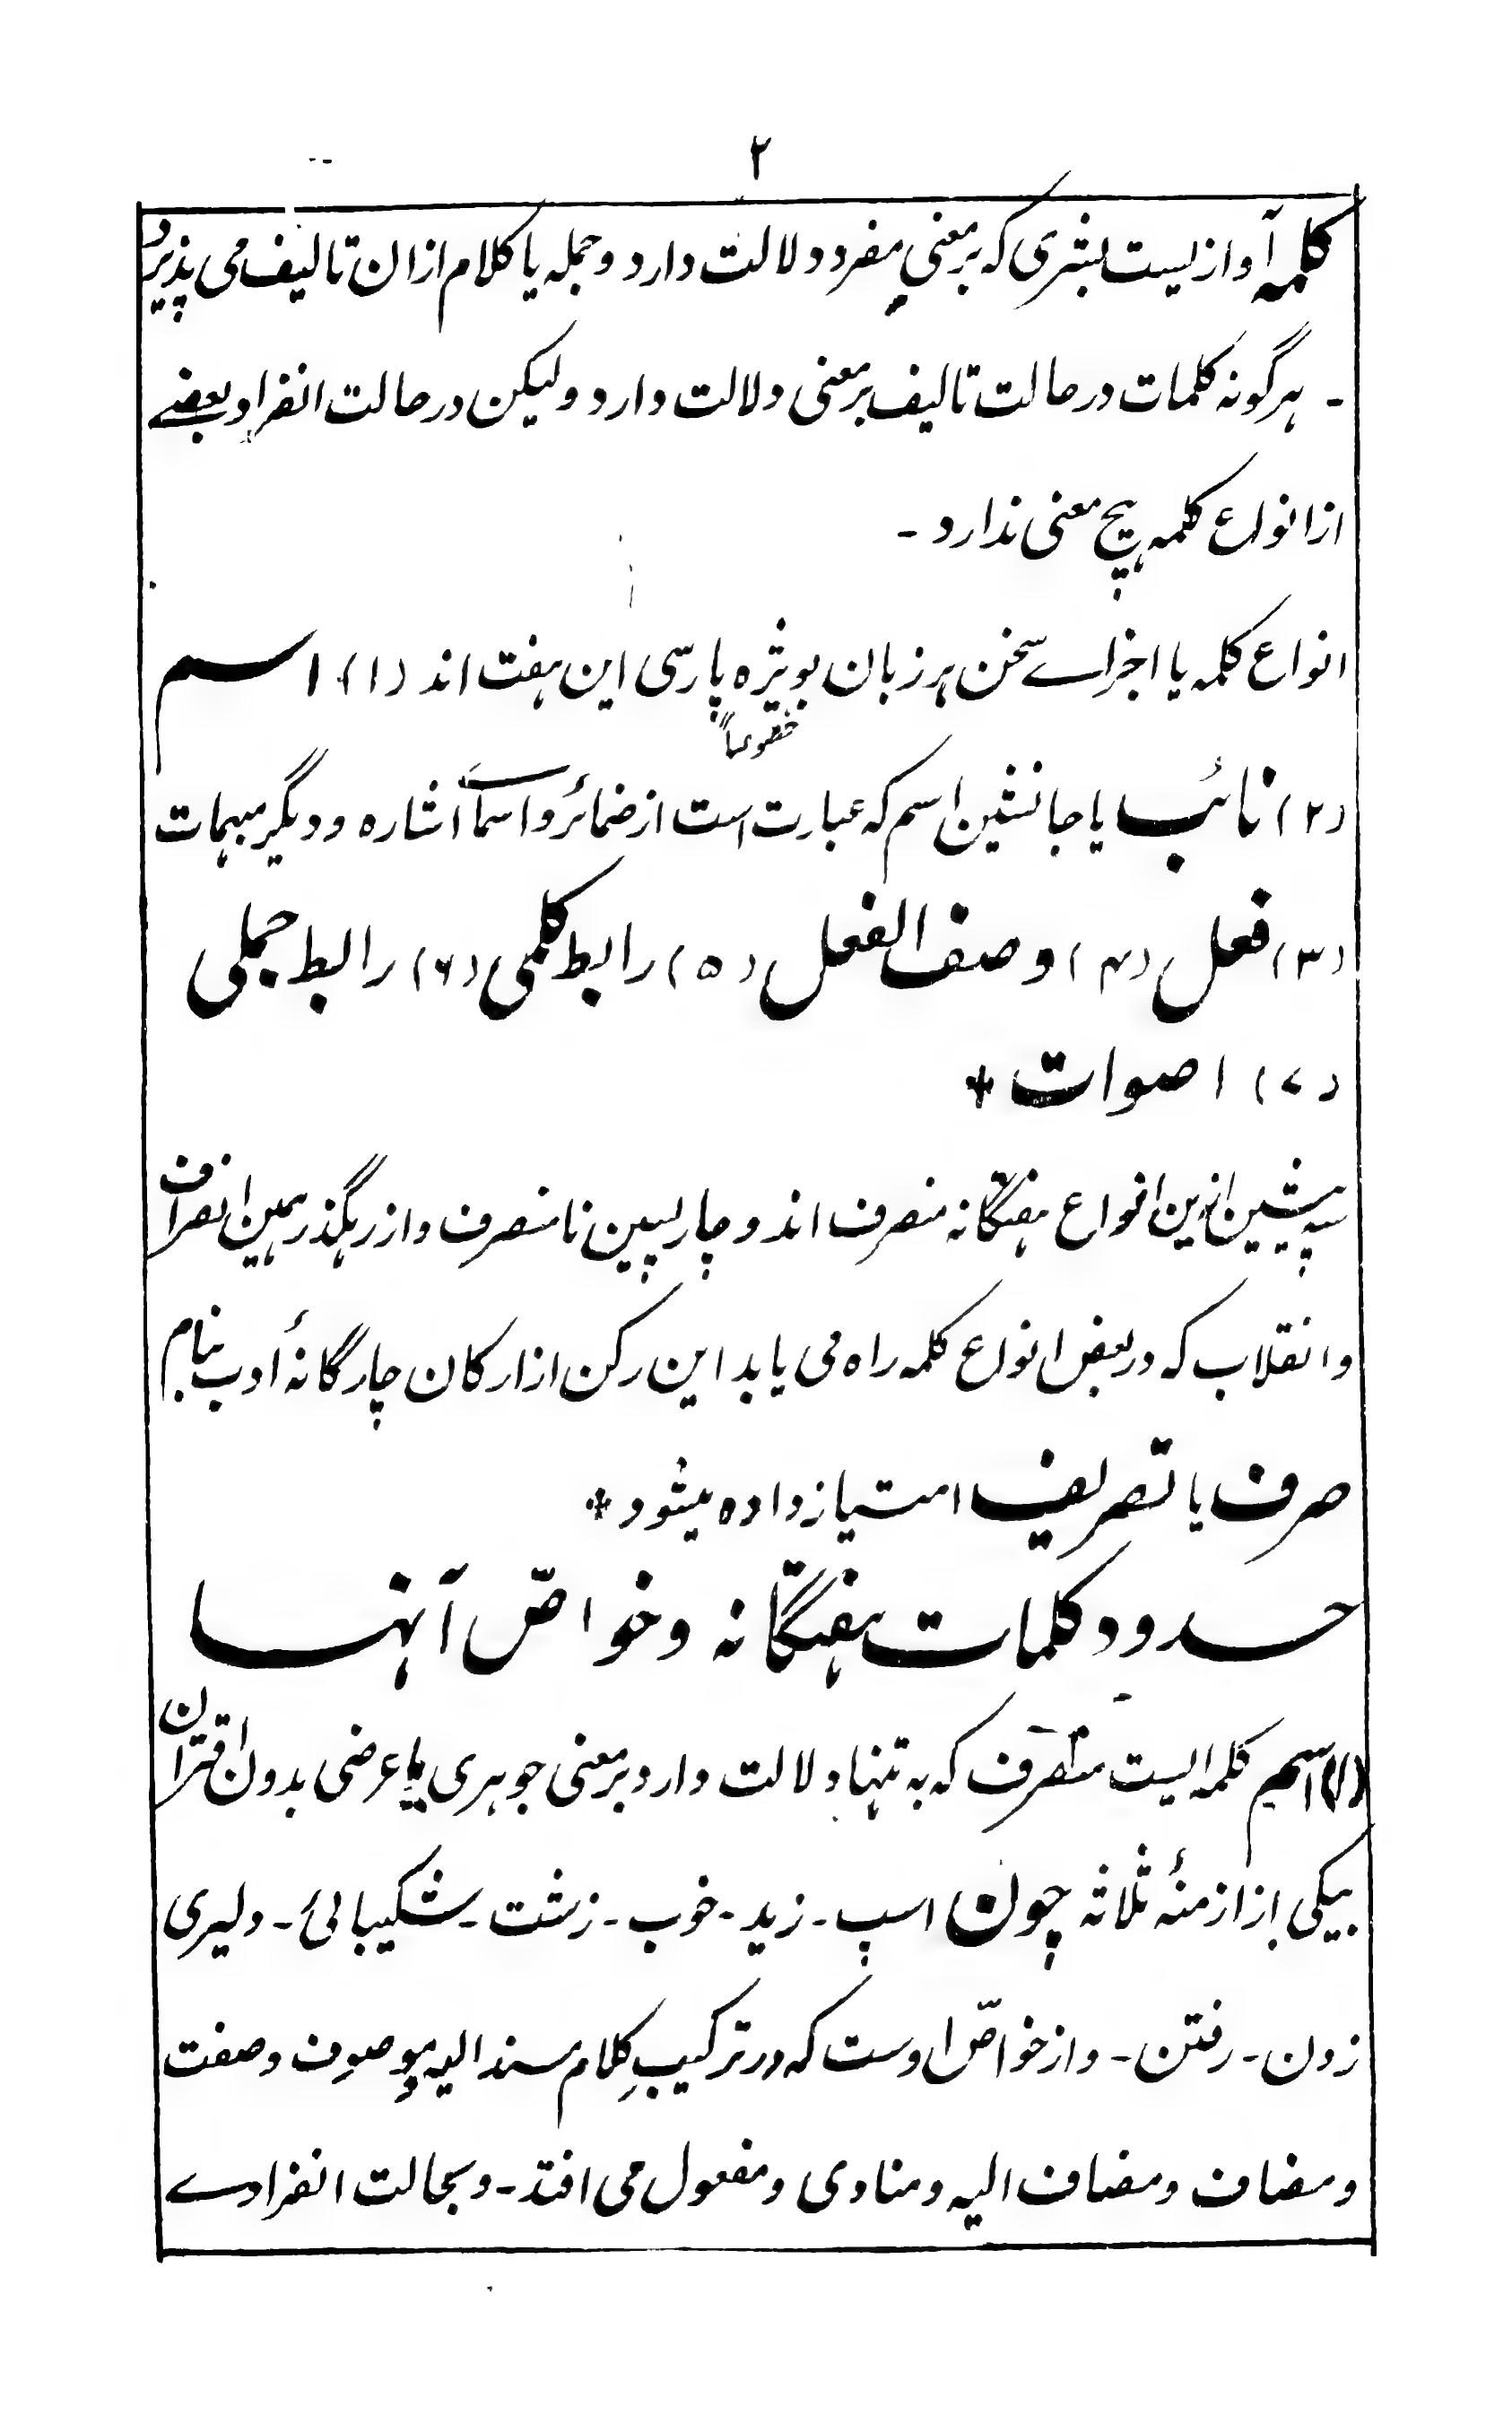 ۲
کلمه آوازیست بشری که بر معنی مفرد دلالت دارد و جمله یا کلام ازان تالیف می پذیرد
- هرگونه کلمات در حالت تالیف بر معنی دلالت دارد ولیکن در حالت انفراد بعضے
از انواع کلمه هیچ معنی ندارد -
انواع کلمه یا اجزاے سخن هر زبان بویژه پارسی این هفت اند (۱) اسم
خصوصاً
(۲) نائب یا جانشین اسم که عبارت است از ضمائر و اسماے اشاره و دیگر مبهمات
(۳) فعل (۴) وصف الفعل (۵) رابط کلمی (۶) رابط جملی
(۷) اصوات +
سه پیشین ازین انواع هفتگانه منصرف اند و چار پسین نامنصرف و از رهگذر همین انصراف
و انقلاب که در بعض انواع کلمه راه می یابد این رکن از ارکان چارگانهٔ ادب بنام
صرف یا تصریف امتیاز داده میشود +
حدود کلمات هفتگانه و خواصّ آنها
(۱) اسم کلمه ایست متصرف که به تنها دلالت دارد بر معنی جوهری یا عرضی بدون اقتران
بیکی از ازمنهٔ ثلاثه چون اسپ - زید - خوب - زشت - شکیبائی - دلیری
زدن - رفتن - و از خواصّ اوست که در ترکیبِ کلام مسند الیه موصوف و صفت
و مضاف و مضاف الیه و منادی و مفعول می افتد - و بحالت انفرادے